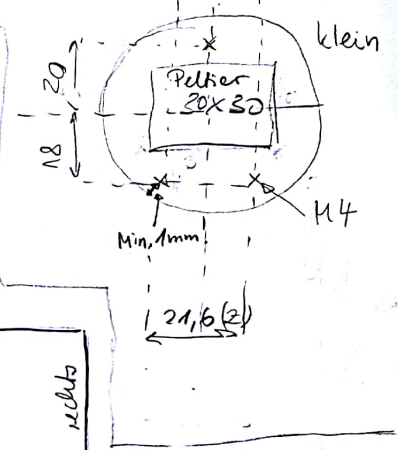 klein
20
Peltier
30x30
18
Min. 1mm
M4
21,6 (2)
rechts